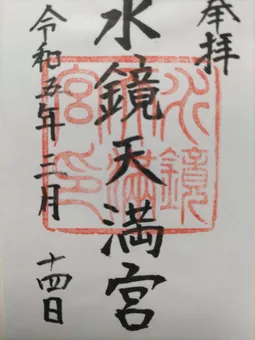 奉拝
水鏡天満宮
水鏡天満宮印
令和五年三月
十四日